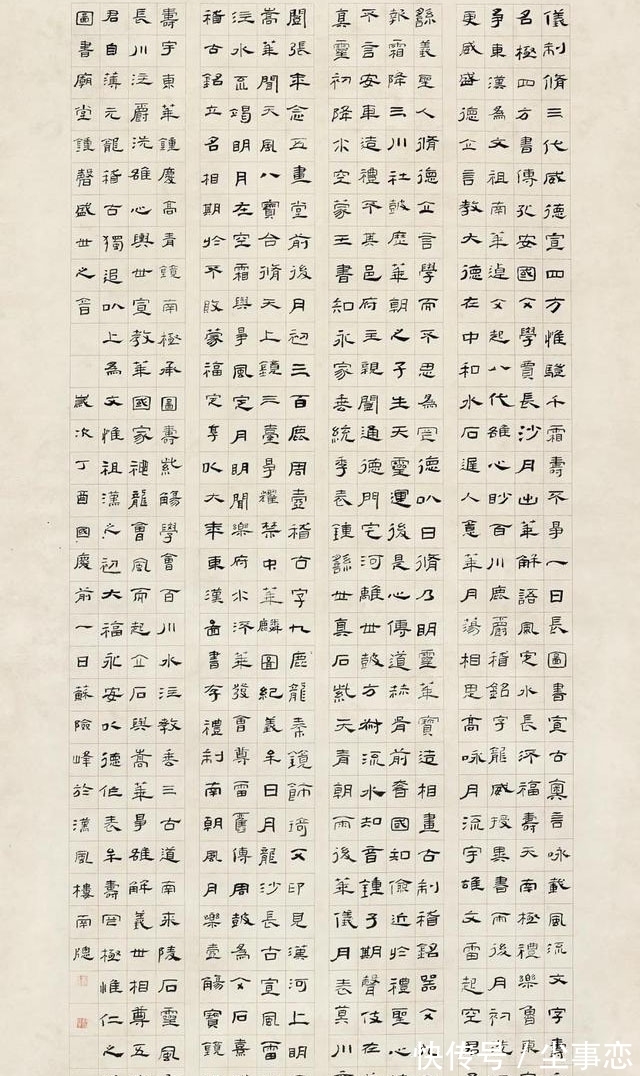 儀制脩三代威德宣四方惟駿千霜壽不爭一日長圖書宣古奧言咏載風流文字壽
名極四方書傳孔安國文學賈長沙月出華解語風定水長流福壽天南極禮樂魯東
爭東漢為文祖南華文起八代雄心眇百川鹿爵稽銘字龍威授異書雨後月初
更咸盛德企言教大德在中和水石遲人意華月蕩相思高咏月流字雄文雷起空
繇義聖人脩德企言學而不思為罔德以日脩乃明靈華寶造相畫古制稽銘器文
歌霜降三川社鼓歷華朝之子生天靈運後是心傳道赫胥前奢國知儉近於禮聖心
不言安車造禮不其邑府主親聞通德門定河離世鼓方樹流水知音鍾子期聲伎在
真靈初降水空蒙王書知永家垂統季表鍾繇世真石紫天青朝雨後華儀月表莫川
閣張年念五畫堂前後月初三百鹿周壺稽古字九鹿龍泰鏡飾琦文印見漢河上明
嵩華聞天風八寶台脩天上鏡三臺爭耀禁中華麟圖紀義年日月龍沙長古宣風雷
注水竭明月在空霜與爭風定月明聞樂府水流華發會尊雷舊傳周鼓為文石熹
稽古銘立名相期於不敗蒙福定享以大年東漢畫書存禮制南朝風月樂壺觴寶鏡
壽宇東華鍾慶高青鏡南極承圖壽紫觴學會百川水注教垂三古道南來陵石靈風
長川注爵洗雄心與世宣教華國家禮龍會風而起企石與嵩華爭雄解義世相尊五
君自薄元龍稽古獨追以上為文惟祖漢之初大福永安以德作表年壽罔極惟仁之
圖書廟堂鍾聲盛世之音 歲次丁酉國慶前一日蘇險峰於漢風樓南牕
快传号 / 尘事恋